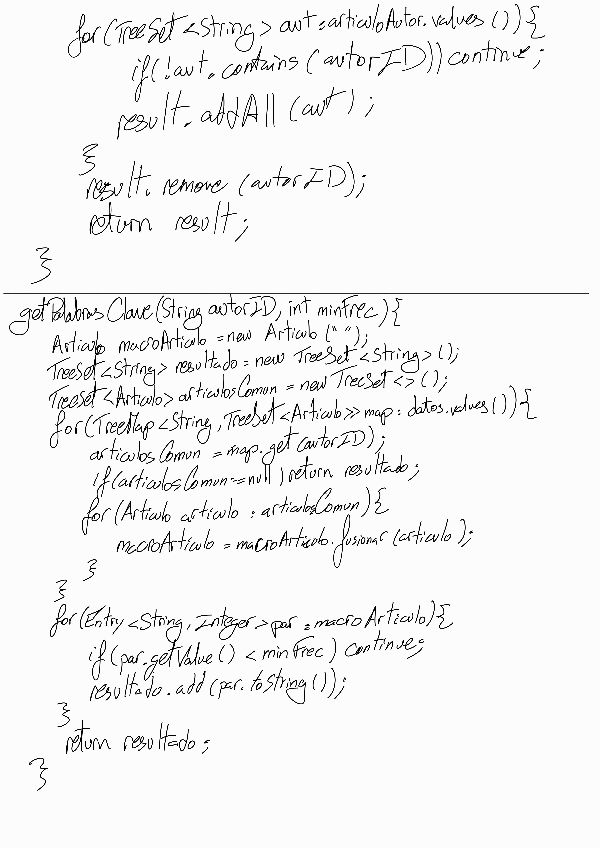 for(TreeSet<String> aut:articuloAutor.values()){
if(!aut.contains(autorID))continue;
result.addAll(aut);
}
result.remove(autorID);
return result;
}
getPalabrasClave(String autorID, int minFrec){
Articulo macroArticulo = new Articulo("");
TreeSet<String> resultado = new TreeSet<String>();
TreeSet<Articulo> articulosComun = new TreeSet<>();
for(TreeMap<String,TreeSet<Articulo>> map: datos.values()){
articulosComun = map.get(autorID);
if(articulosComun==null)return resultado;
for(Articulo articulo : articulosComun){
macroArticulo = macroArticulo.fusionar(articulo);
}
}
for(Entry<String,Integer>par:macroArticulo){
if(par.getValue()<minFrec) continue;
resultado.add(par.toString());
}
return resultado;
}